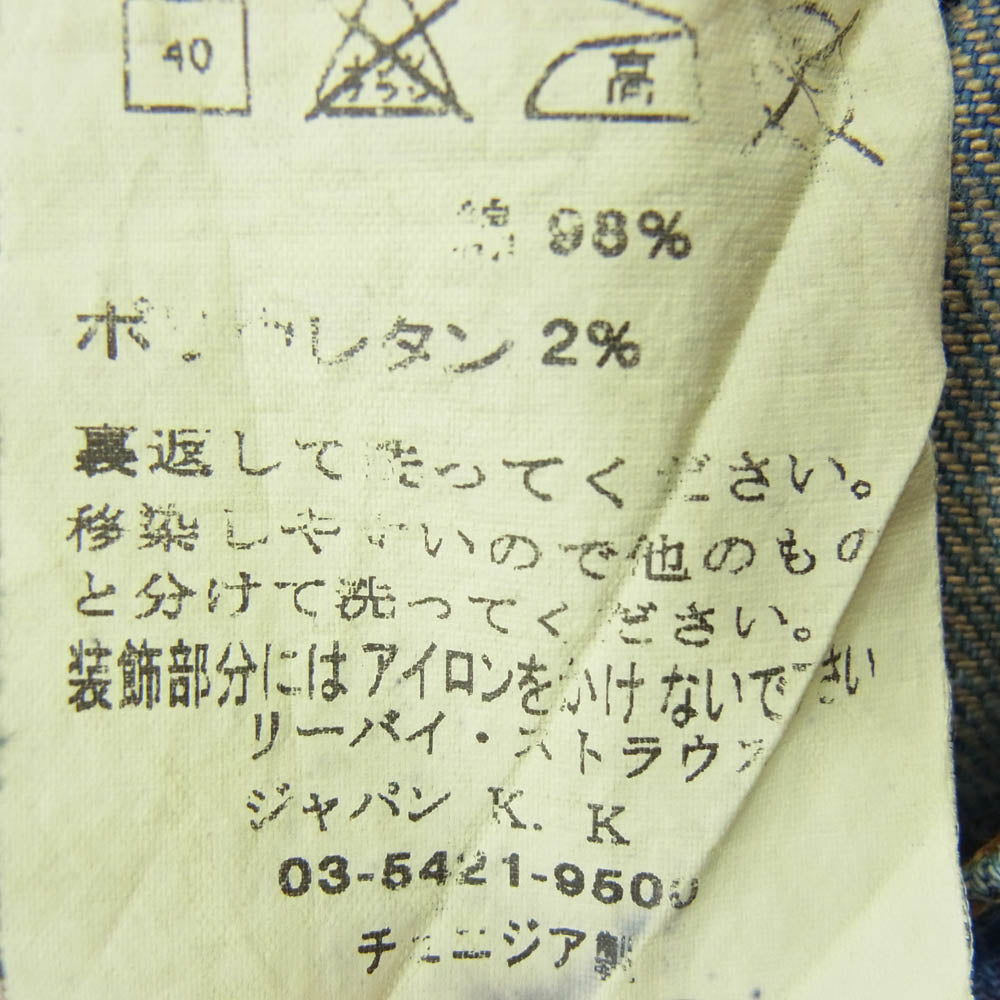 40 エンソ 高
綿 98%
ポリウレタン 2%
裏返して洗ってください。
移染しやすいので他のもの
と分けて洗ってください。
装飾部分にはアイロンをかけないで下さい
リーバイ・ストラウス
ジャパン K. K
03-5421-9500
チュニジア製